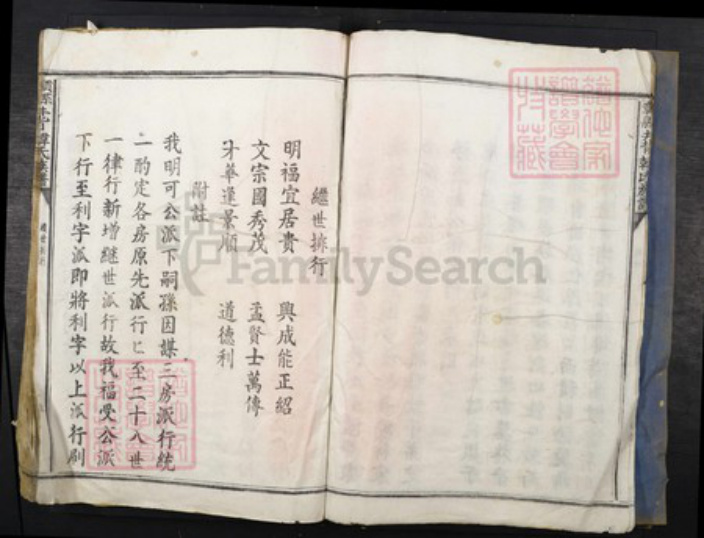 繼世排行
明福宜居貴　興成能正紹
文宗國秀茂　孟賢士萬傳
才華逢景順　道德利
附註
我明可公派下嗣孫因謀三房派行統
一酌定各房原先派行已至二十八世
一律行新增继世派行故我福受公派
下行至利字派即將利字以上派行刷
FamilySearch